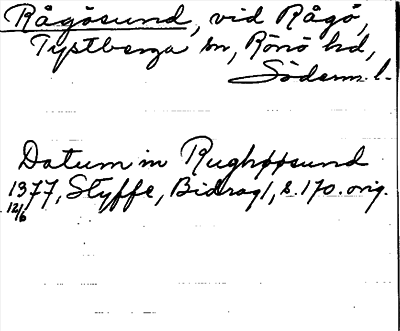 Rågösund, vid Rågö,
Tystberga sn, Rönö hd,
Söderm. l.
Datum in Rughøøsund
1377, Styffe, Bidrag 1, s. 170. orig.
12/6